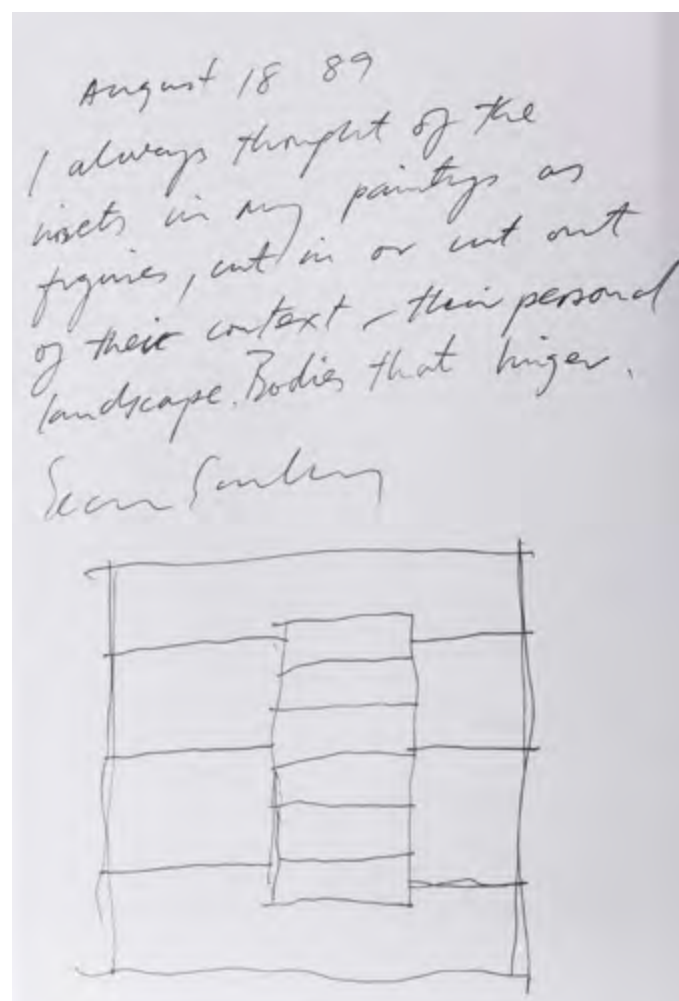 August 18 89
I always thought of the
insets in my paintings as
figures, cut in or cut out
of their context – their personal
landscape. Bodies that linger.
Sean Scully